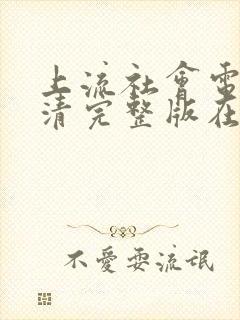 上流社會電
清完整版在
不愛耍流氓